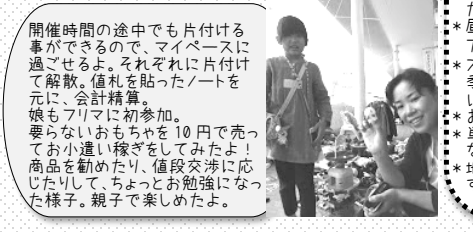 開催時間の途中でも片付ける
事ができるので、マイペースに
過ごせるよ。それぞれに片付け
て解散。値札を貼ったノートを
元に、会計精算。
娘もフリマに初参加。
要らないおもちゃを10円で売っ
てお小遣い稼ぎをしてみたよ！
商品を勧めたり、値段交渉に応
じたりして、ちょっとお勉強になっ
た様子。親子で楽しめたよ。